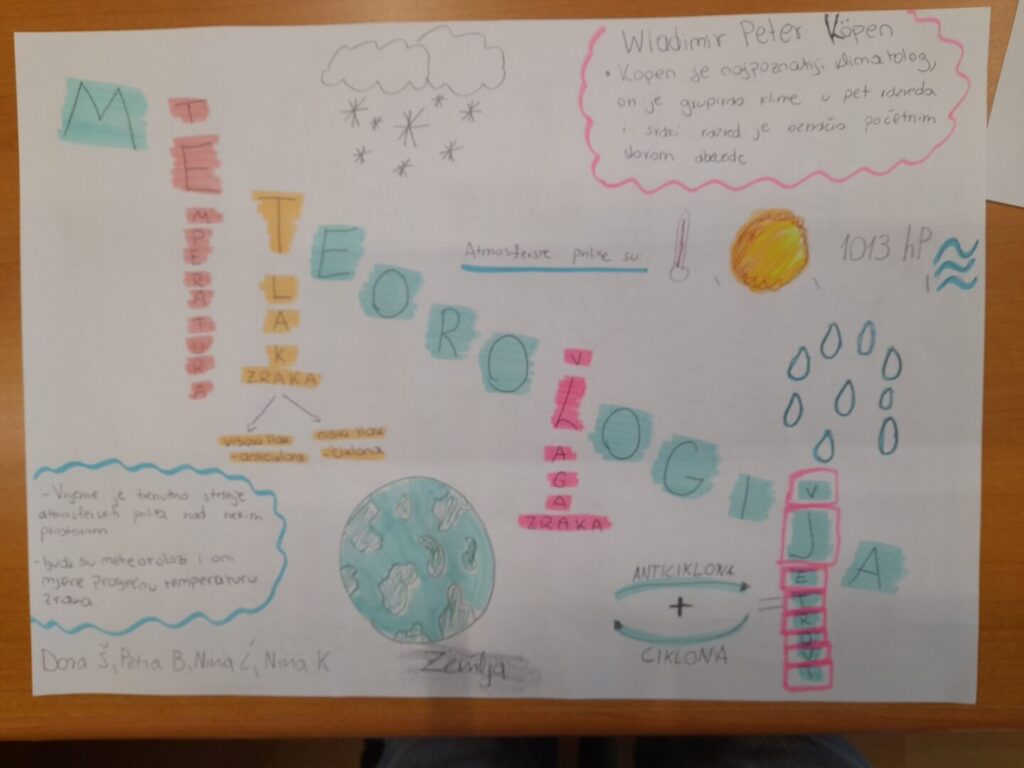 Wladimir Peter Köpen
• Kopen je najpoznatiji klimatolog,
on je grupirao klime u pet razreda
i svaki razred je označio početnim
slovom abecede
METEOROLOGIJA
TEMPERATURA
TLAK
ZRAKA
visoki tlak
- anticiklona
niski tlak
- ciklona
Atmosferske prilike su
1013 hP
VLAGA
ZRAKA
- Vrijeme je trenutno stanje
atmosferskih prilika nad nekim
prostorom
- ljudi su meteorolozi i oni
mjere prosječnu temperaturu
zraka
ANTICIKLONA
+
CIKLONA
=
Zemlja
Dora Š, Petra B, Nina Ć, Nina K